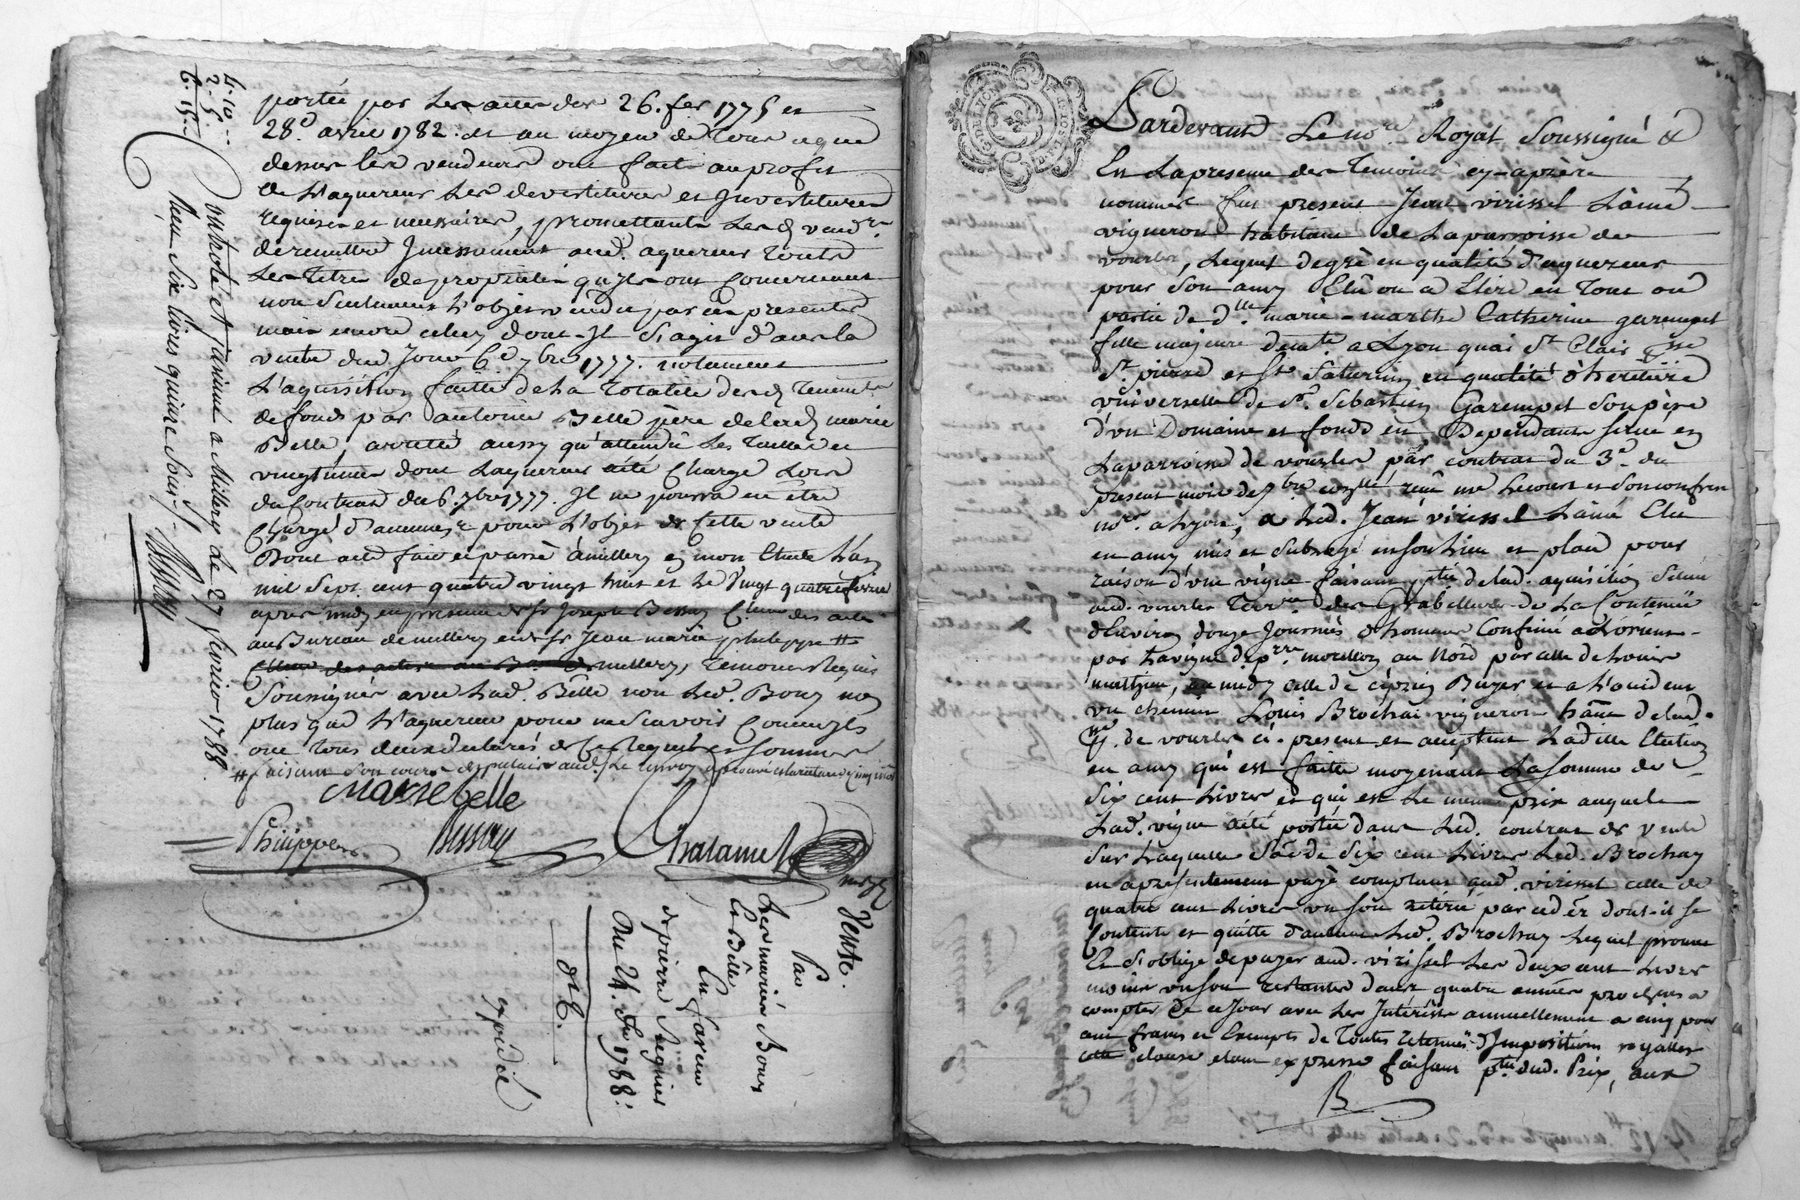 portée par les actes des 26. fer 1775 et
28e avril 1782. et au moyen de tout ce que
dessus les vendeurs ont fait au profit
de l'aquereur les devestitures et Investitures
requises et necessaires, promettants lesd vendrs
de remettre Incessament aud. aquereur touts
les titres de propriété qu'ils ont concernant
non seulement l'objet vendu par ces presentes
mais encore celuy dont Il s'agit d'avec la
vente dud Jour 6e 7bre 1777. notamment
l'aquisition faitte de la totalité desd tenemts
de fonds par antoine Belle père de lad marie
Belle arreté aussy qu'attendu les tailles et
vingtiemes dont l'aquereur a été Chargé lors
du Contrat du 6. 7bre 1777. Il ne pourra en être
Chargé d'aucuns pour l'objet de Cette vente
Dont acte fait et passé a millery en mon Etude l'an
mil sept cent quatre vingt huit et le vingt quatre fevrier
apres midy en presence de sr Joseph Bessay des actes
au Bureau de millery et de sr Jean marie philippe #
millery, temoins Requis
soussignés avec lad. Belle non led. Bouy non
plus que l'aquereur pour ne sçavoir Comme ils
ont tous deux declarés de Ce Requis et sommés
# faisant son cours de palais aud.
Marie belle
Philippe
Bessay
Chalamel
4. 10
2. 5
6. 15
Controlé et Insinué a Millery Le 27 fevrier 1788.
Reçu Six livres quinze sous
Bessay
Vente.
Par
Les mariés Bouy
Et Belle
En faveur
de pierre
Du 24. fer 1788.
expédié
Pardevant Le nore Royal Soussigné &
En La presence des Temoins cy-après
nommés fut present Jean virissel L'ainé
vigneron habitant de La parroisse de
vourles, Lequel de gré en qualité d'aquereur
pour son amy Elû ou a Elire en Tout ou
partie de dlle marie-marthe Catherine garempet
fille majeure demte a Lyon quai St Clair psse
St. pierre et St. Saturnin en qualité d'heritiere
universelle de Sr. Sebastien Garempet son père
d'un Domaine et fonds en Dependants situé en
La parroisse de vourles par contrat du 3e. du
present mois de reçu me Lecourt et son confrere
nores a Lyon, a Led. Jean virissel L'ainé Elu
en amy mis et subrogé en son Lieu et place pour
raison d'une vigne faisant ptie de lad. aquisition Située
aud. vourles Terre des Grabelliers de La Contenüe
d'Environ douze Journés d'hommes Confiné a L'orient
par La vigne de prre. morellon au Nord par celle de Louis
mathieu, au midy celle de Buyer et a L'occident
un chemin Louis Brochay vigneron habt de lad.
psse. de vourles ci-present et acceptant Ladite Election
en amy qui est faitte moyenant La somme de
Six cent Livres et qui est Le meme prix auquel
Lad. vigne a été portée dans Led. contrat de vente
sur Laquelle some de Six cent Livres Led. Brochay
en a presentement payé comptant aud. virissel celle de
quatre cent Livres un sou retirée par icelui dont il se
Contente et quitte d'autant Led. Brochay Lequel promet
Et s'oblige de payer aud. virissel Les deux cent Livres
moins un sou restantes dans quatre années prochaines a
compter de ce Jour avec Les Intérêts annuellement a cinq pour
cent francs et Exempts de Toutes retenües d'Impositions royalles
cette clause etant expresse faisant ptie dud. Prix, aux
B